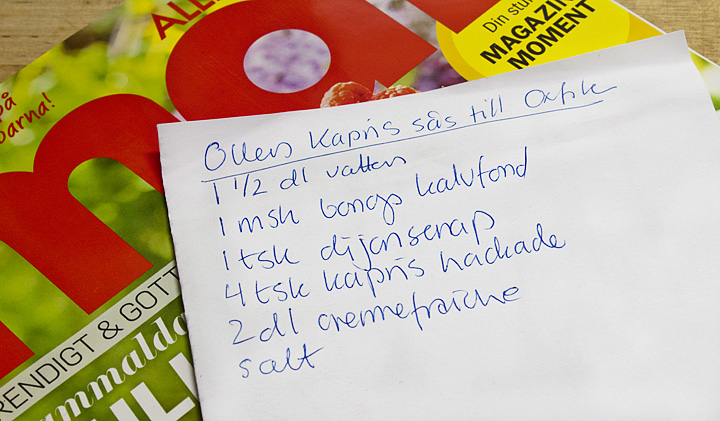 ALL
Din stun
MAGAZIN
MOMENT
på
barna!
m
RENDIGT & GOTT
ammalda
Ollers Kapris sås till Oxfile
1 1/2 dl vatten
1 msk bongs kalvfond
1 tsk dijonsenap
4 tsk kapris hackade
2 dl cremefraiche
salt